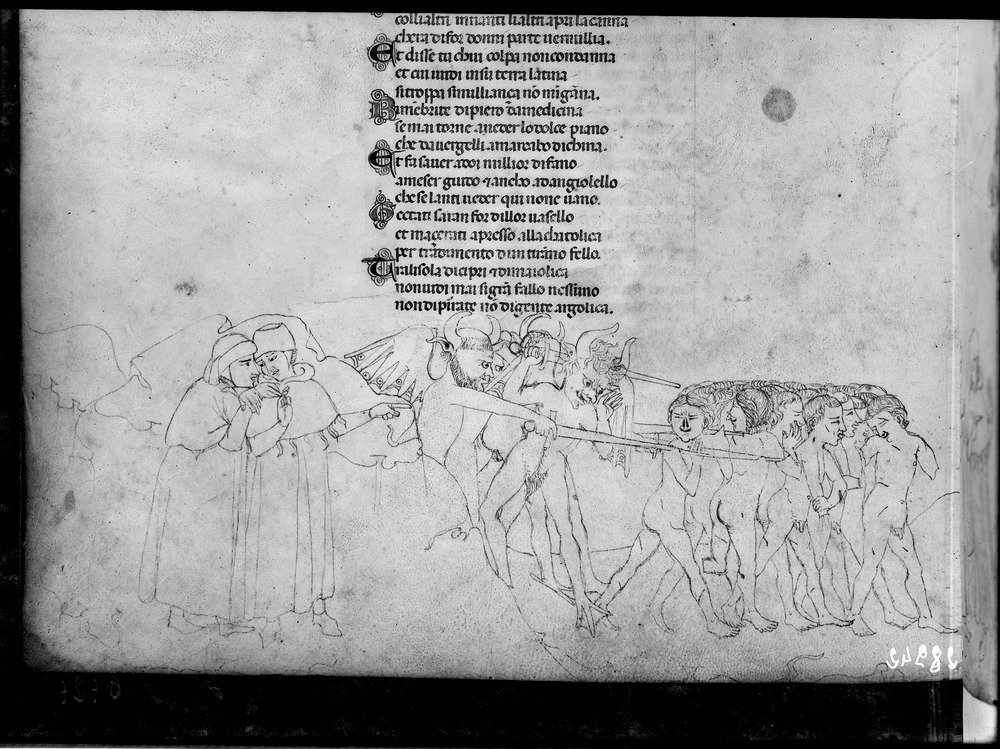 collialtri innanti lialtri apri la canna
chera difor donni parte uermillia.
Et disse tu chui colpa non condanna
et cui uidi insu terra latina
si troppa simillianca nō mīgāna.
Rimēbrite di piero damedicina
se mai torne aueder lo dolce piano
che da uergelli a marcabo dichina.
Et fa sauer adoi millior di fano
a meser guido ⁊ ancho ad angiolello
che se lanti ueder qui non e uano.
Gectati saran for dillor uasello
et macerati apresso alla chatolica
per tradimento dun tirāno fello.
Tralisola dicipri ⁊ dimaiolica
non uidi mai si grā fallo nettūno
non di pirate nō di gente argolica.